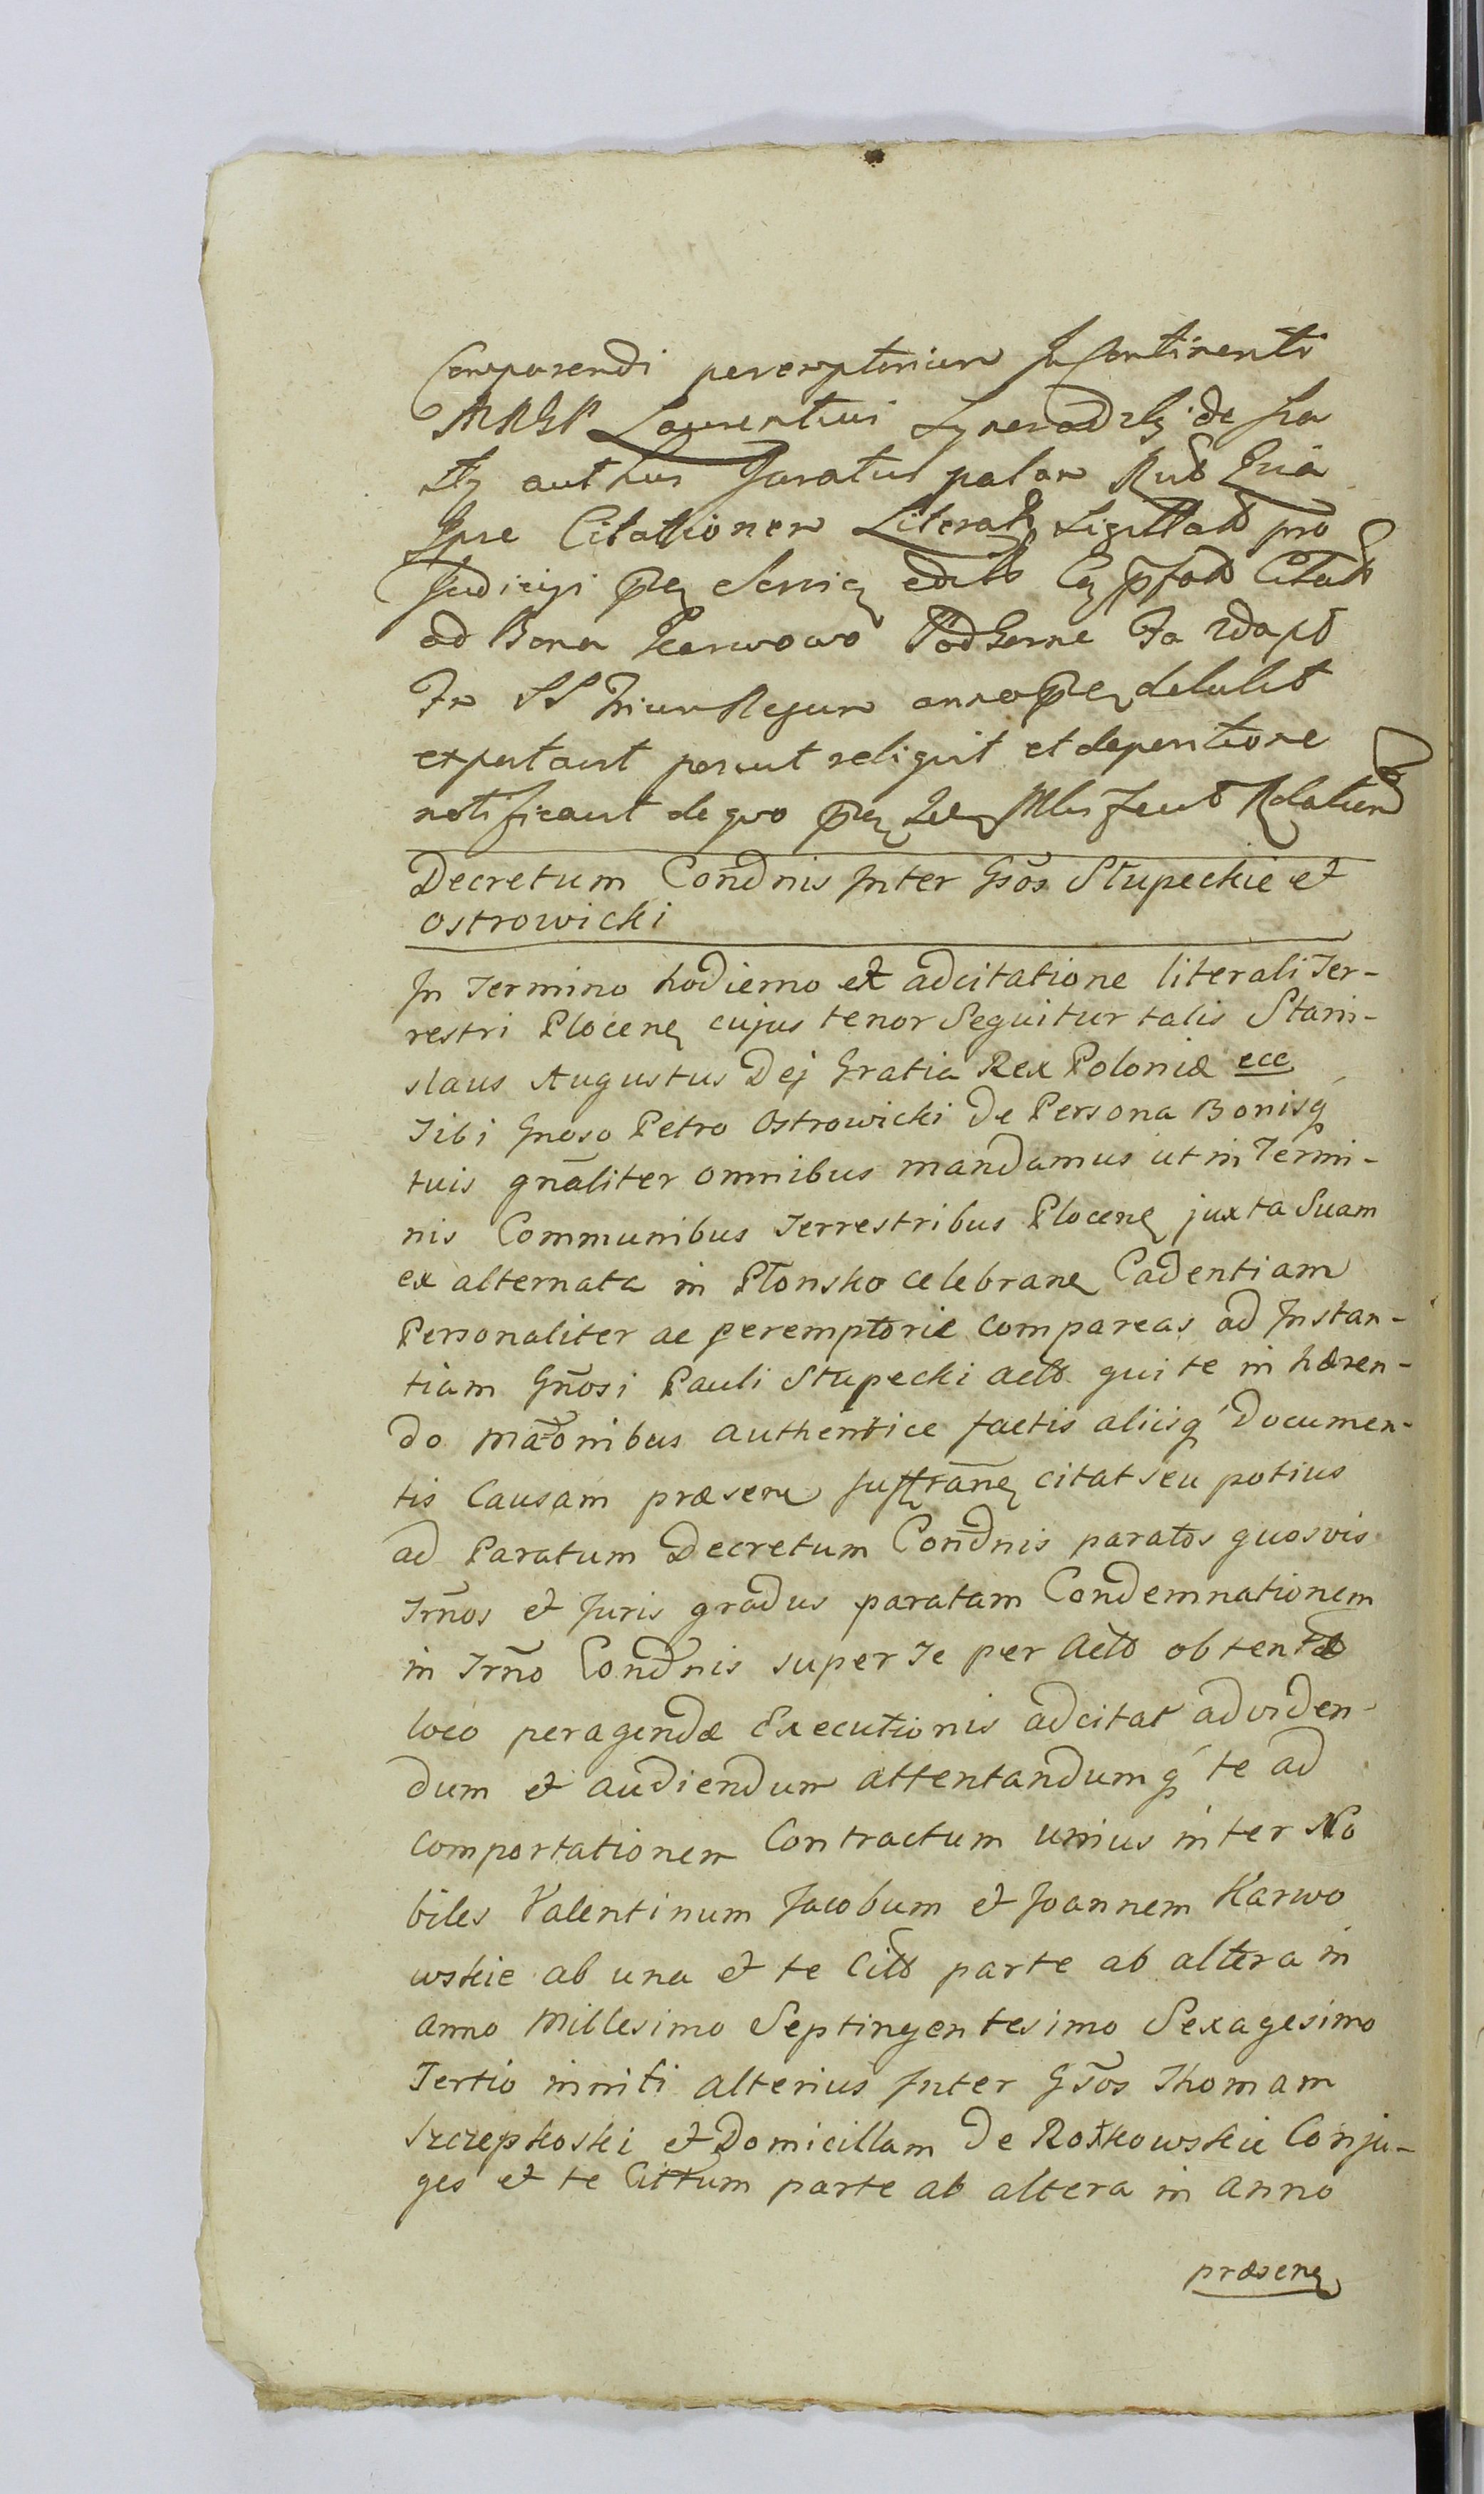 Comparendi peremptorium In Continenti
MRGR Laurentius de
authus Juratus palam Rcd Quia
Ipse Citationem Literat Sigillat pro
Judicijs edit Citat
ad Bona Karwowo Podgorne
In SS Trium Regum anno detulit
et deperitione
notificavit de quo Relation
Decretum Condnis Inter Gsos Stupeckie et
Ostrowicki
In Termino hodierno ex adcitatione literali Ter-
restri Plocen cujus tenor Sequitur talis Stani-
slaus Augustus Dej Gratia Rex Poloniæ ece
Tibi Gnoso Petro Ostrowicki de Persona Bonisq
tuis gnaliter omnibus mandamus ut in Termi-
nis Communibus Terrestribus Plocen juxta Suam
ex alternata in Płonsko celebran Cadentiam
Personaliter ac peremptorie compareas ad Instan-
tiam Gnosi Pauli Stupecki act qui te in hæren-
do matonibus authentice factis aliisq Documen-
tis Causam præsen citat seu potius
ad Paratum Decretum Condnis paratos quosvis
Trnos et Juris gradus paratam Condemnationem
in Trno Condnis super Te per act obtent
loco peragendæ Executionis adcitat ad viden-
dum et audiendum attentandumq te ad
comportationem Contractum unius inter No
biles Valentinum Jacobum et Joannem Karwo
wskie ab una et te Cit parte ab altera in
anno Millesimo Septingentesimo Sexagesimo
Tertio initi alterius Inter Gsos Thomam
Szczepkoski et Domicillam de Rotkowskie Conju-
ges et te Cittum parte ab altera in anno
præsen